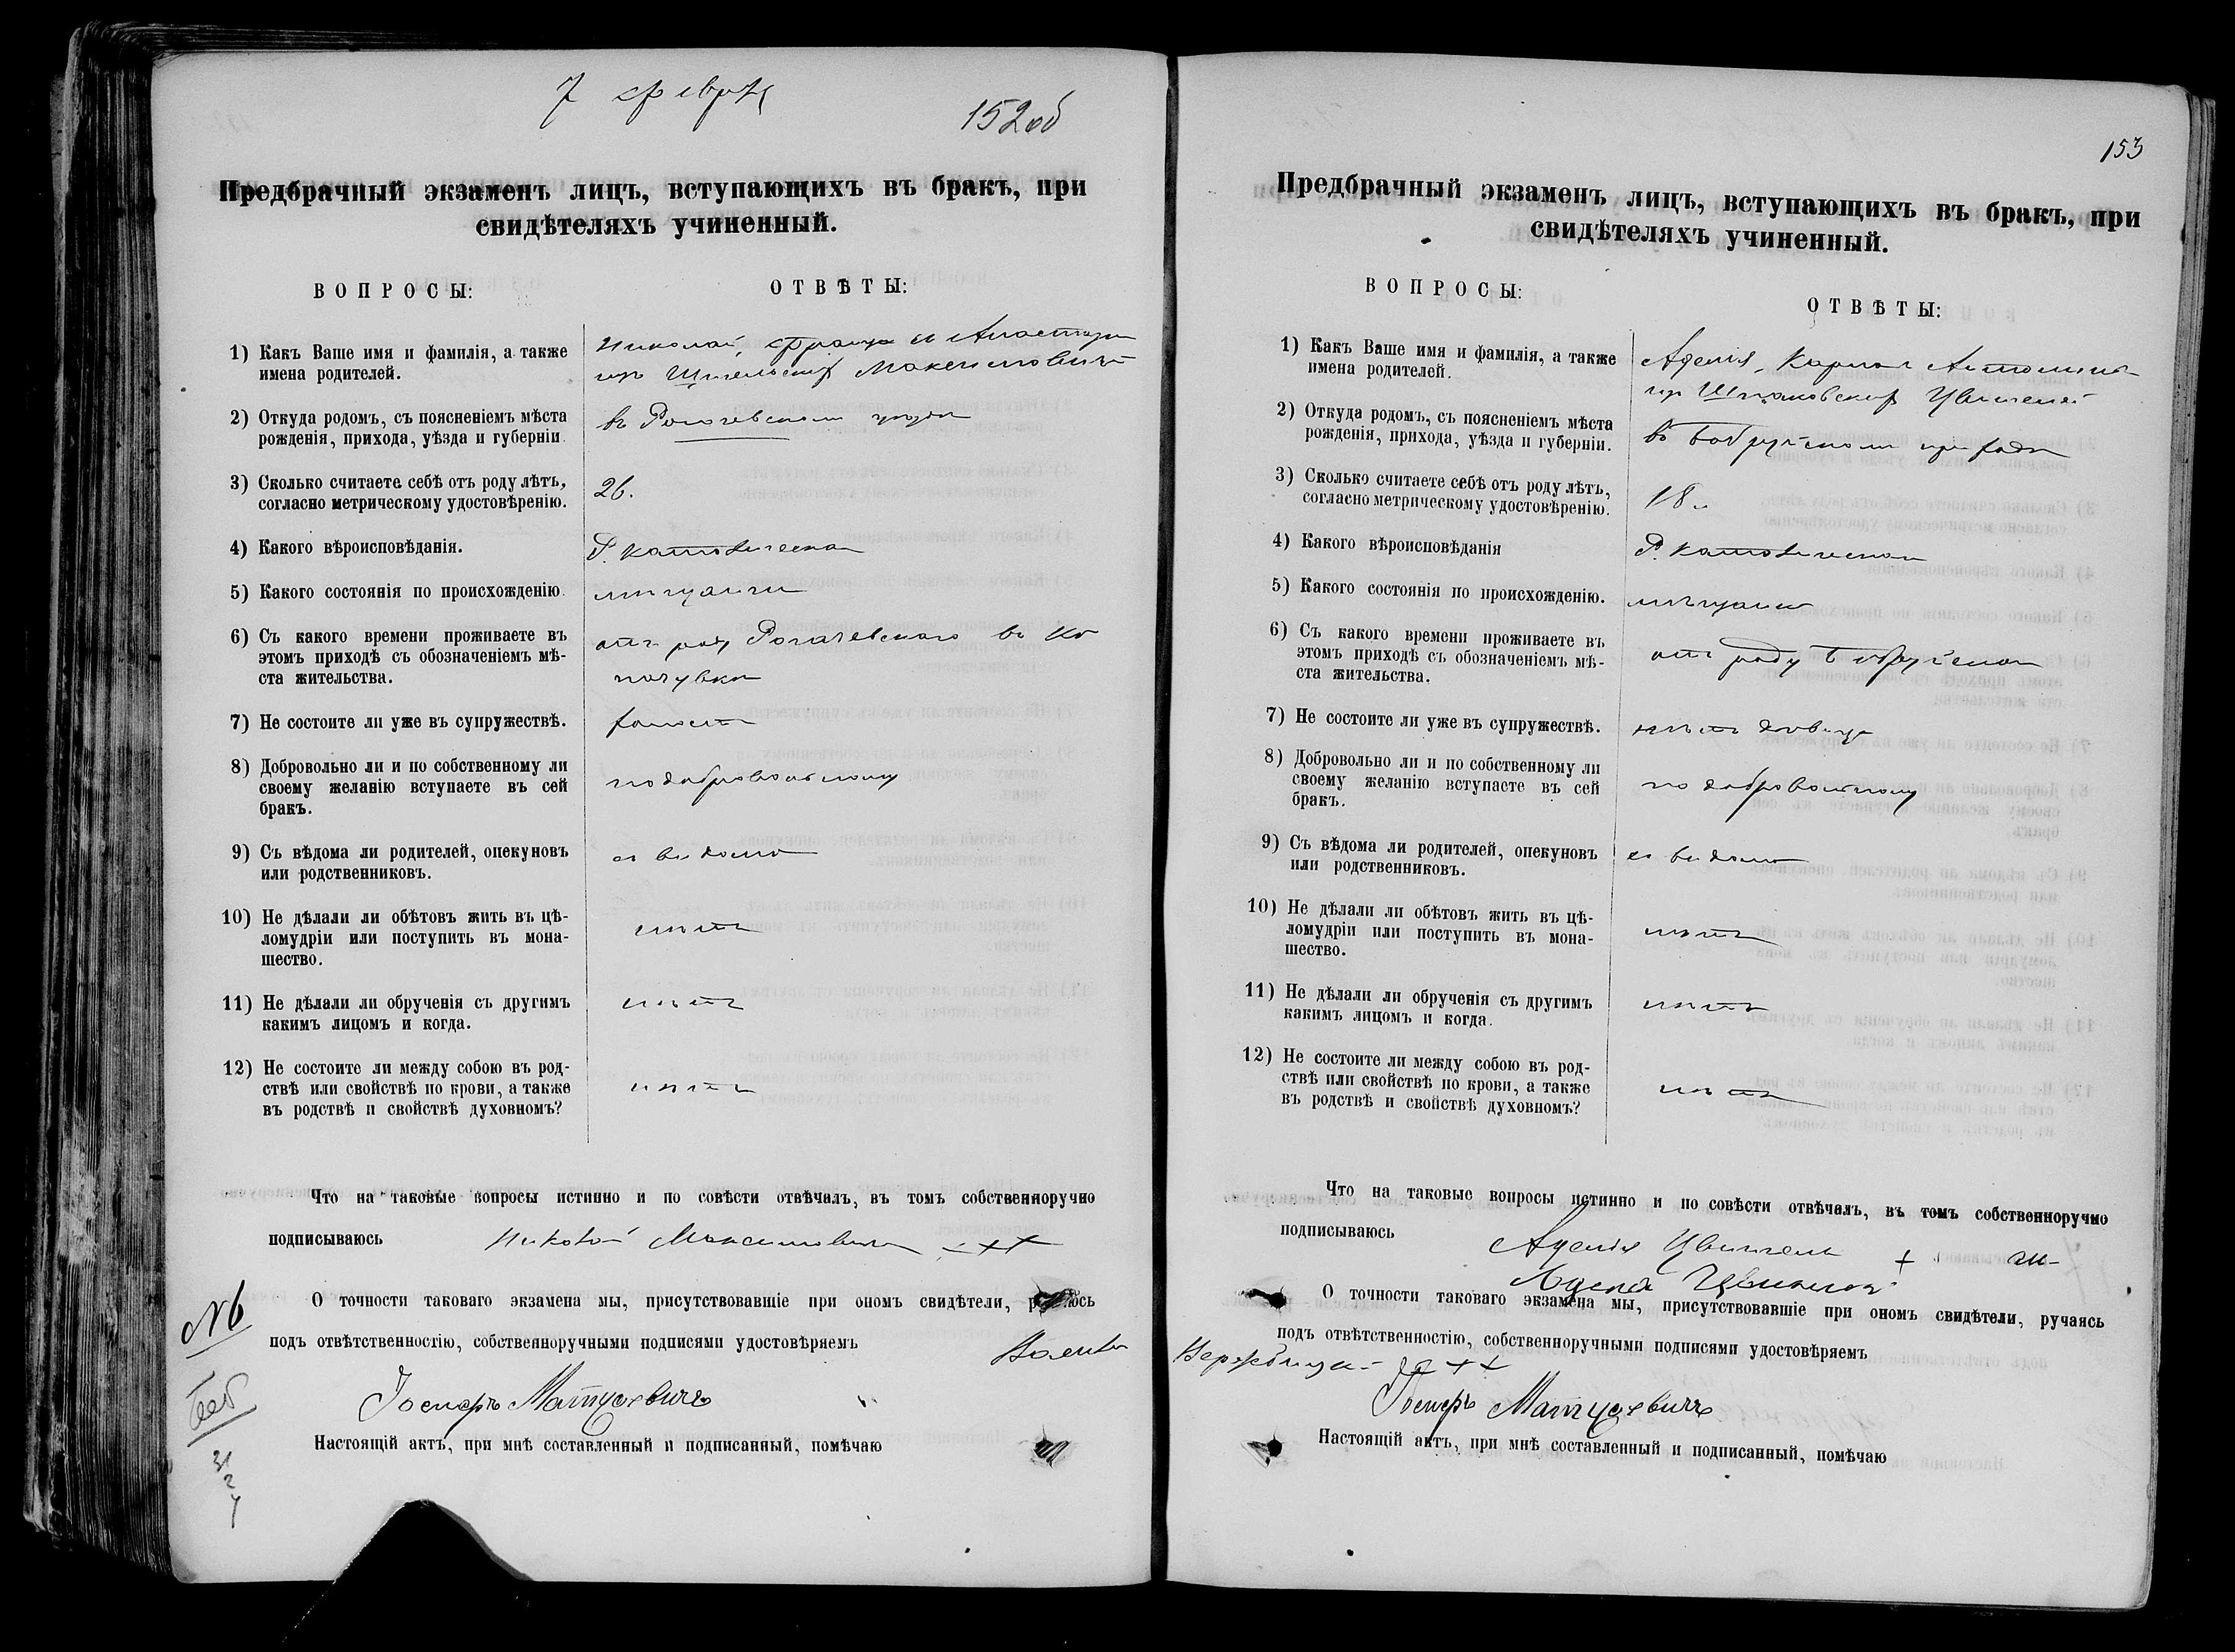 7 февр
152об
Предбрачный экзаменъ лицъ, вступающихъ въ бракъ, при
свидѣтеляхъ учиненный.
ВОПРОСЫ:
ОТВѢТЫ:
1) Какъ Ваше имя и фамилія, а также
имена родителей.
Николай, Франца и Анастазіи
изъ Максимовичъ
2) Откуда родомъ, съ поясненіемъ мѣста
рожденія, прихода, уѣзда и губерніи.
въ Рогачевскомъ уѣздѣ
3) Сколько считаете себѣ отъ роду лѣтъ,
согласно метрическому удостовѣренію.
26.
4) Какого вѣроисповѣданія.
Р. Католическаго
5) Какого состоянія по происхожденію.
мѣщанинъ
6) Съ какого времени проживаете въ
этомъ приходѣ съ обозначеніемъ мѣ-
ста жительства.
отъ роду Рогачевскаго въ
7) Не состоите ли уже въ супружествѣ.
холостъ
8) Добровольно ли и по собственному ли
своему желанію вступаете въ сей
бракъ.
по добровольному
9) Съ вѣдома ли родителей, опекуновъ
или родственниковъ.
съ вѣдома
10) Не дѣлали ли обѣтовъ жить въ цѣ-
ломудріи или поступить въ мона-
шество.
нѣтъ
11) Не дѣлали ли обрученія съ другимъ
какимъ лицомъ и когда.
нѣтъ
12) Не состоите ли между собою въ род-
ствѣ или свойствѣ по крови, а также
въ родствѣ и свойствѣ духовномъ?
нѣтъ
Что на таковые вопросы истинно и по совѣсти отвѣчалъ, въ томъ собственноручно
подписываюсь
Николай Максимовичъ +++
О точности таковаго экзамена мы, присутствовавшіе при ономъ свидѣтели, ручаюсь
подъ отвѣтственностію, собственноручными подписями удостовѣряемъ
Іосифъ Матусевичъ
Настоящій актъ, при мнѣ составленный и подписанный, помѣчаю
№6
153
Предбрачный экзаменъ лицъ, вступающихъ въ бракъ, при
свидѣтеляхъ учиненный.
ВОПРОСЫ:
ОТВѢТЫ:
1) Какъ Ваше имя и фамилія, а также
имена родителей.
Аделія, Карла и Антонины
изъ Шпаковскихъ
2) Откуда родомъ, съ поясненіемъ мѣста
рожденія, прихода, уѣзда и губерніи.
въ Бобруйскомъ приходѣ
3) Сколько считаете себѣ отъ роду лѣтъ,
согласно метрическому удостовѣренію.
18
4) Какого вѣроисповѣданія
Р. Католическаго
5) Какого состоянія по происхожденію.
мѣщанка
6) Съ какого времени проживаете въ
этомъ приходѣ съ обозначеніемъ мѣ-
ста жительства.
отъ роду
7) Не состоите ли уже въ супружествѣ.
нѣтъ дѣвица
8) Добровольно ли и по собственному ли
своему желанію вступаете въ сей
бракъ.
по добровольному
9) Съ вѣдома ли родителей, опекуновъ
или родственниковъ.
съ вѣдома
10) Не дѣлали ли обѣтовъ жить въ цѣ-
ломудріи или поступить въ мона-
шество.
нѣтъ
11) Не дѣлали ли обрученія съ другимъ
какимъ лицомъ и когда.
нѣтъ
12) Не состоите ли между собою въ род-
ствѣ или свойствѣ по крови, а также
въ родствѣ и свойствѣ духовномъ?
нѣтъ
Что на таковые вопросы истинно и по совѣсти отвѣчалъ, въ томъ собственноручно
подписываюсь
Аделія
О точности таковаго экзамена мы, присутствовавшіе при ономъ свидѣтели, ручаясь
подъ отвѣтственностію, собственноручными подписями удостовѣряемъ
Іосифъ Матусевичъ
Настоящій актъ, при мнѣ составленный и подписанный, помѣчаю